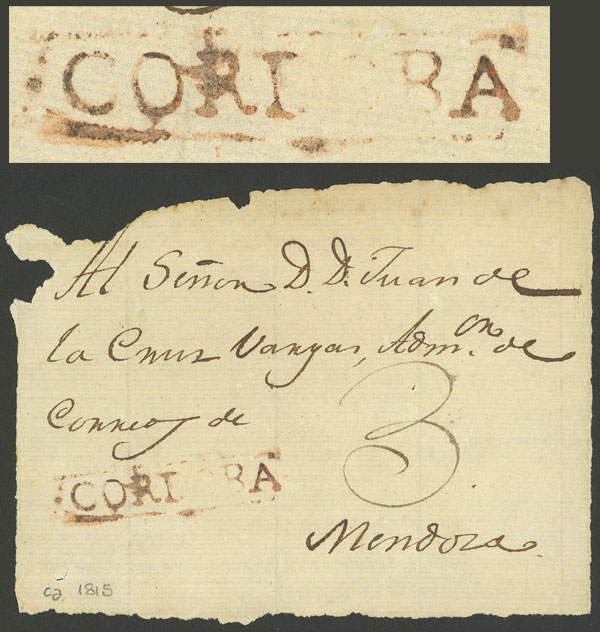 CORDOBA
Al Señor D. D. Juan de
la Cruz Vargas, Adm.or de
Correos de
3
CORDOBA
Mendoza.
ca 1815